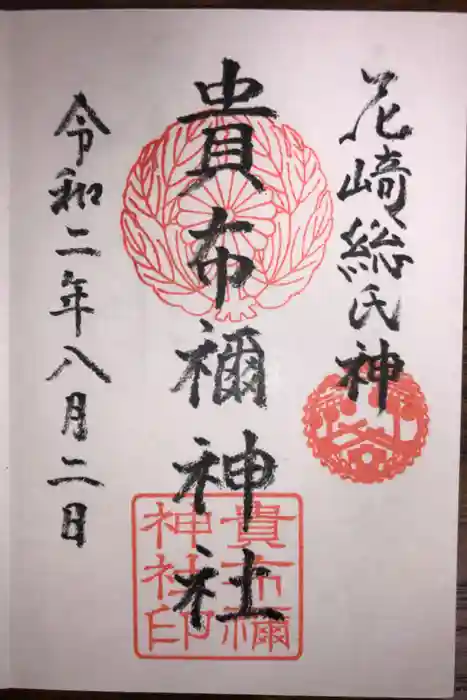 花崎総氏神
貴布禰神社
貴布禰
神社印
令和二年八月二日